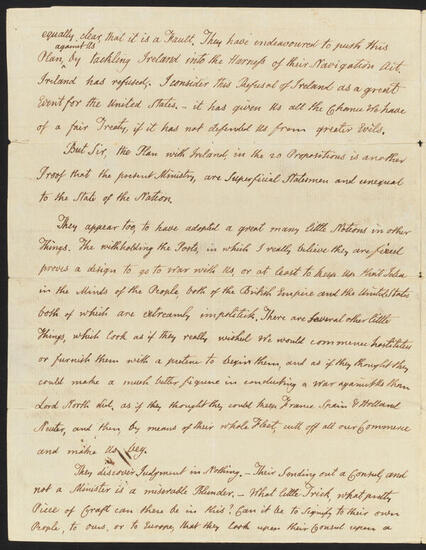 equally clear, that it is a Fault. They have endeavoured to push this
against Us
Plan, by tackling Ireland into the Harness of their Navigation Act.
Ireland has refused. I consider this Refusal of Ireland as a great
Event for the United States. — it has given us all the Chance We have
of a fair Treaty, if it has not defended Us from greater Evils.
But Sir, the Plan with Ireland, in the 20 Propositions is another
Proof that the present Ministry, are Superficial Statesmen and unequal
to the State of the Nation.
They appear too, to have adopted a great many little Notions in other
Things. The withholding the Posts, in which I really believe they are fixed
proves a design to go to War with Us, or at least to keep up that Idea
in the Minds of the People, both of the British Empire and the United States
both of which are extreamly impolitick. There are several other little
Things, which look as if they really wished We would commence hostilities
or furnish them with a pretence to begin them, and as if they thought they
could make a much better figure in conducting a War against Us than
Lord North did, as if they thought they could keep France Spain & Holland
Neuter, and then by means of their whole Fleet, cutt off all our Commerce
and make Us beg.
They discover Judgment in Nothing. — Their Sending out a Consul, and
not a Minister is a miserable Blunder. — What little Trick, what pretty
Piece of Craft can there be in this? Can it be to Signify to their own
People, to ours, or to Europe, that they look upon their Consul upon a